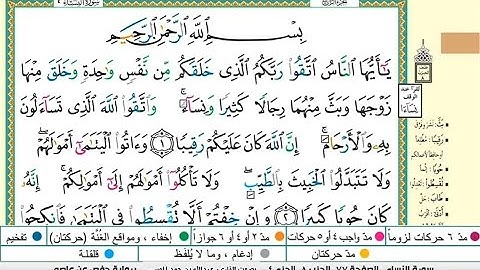 سُورَةُ النِّسَاءِ ٤
بِسْمِ ٱللَّهِ ٱلرَّحْمَٰنِ ٱلرَّحِيمِ
يَٰٓأَيُّهَا ٱلنَّاسُ ٱتَّقُوا۟ رَبَّكُمُ ٱلَّذِى خَلَقَكُم مِّن نَّفْسٍ وَٰحِدَةٍ وَخَلَقَ مِنْهَا
زَوْجَهَا وَبَثَّ مِنْهُمَا رِجَالًا كَثِيرًا وَنِسَآءً ۚ وَٱتَّقُوا۟ ٱللَّهَ ٱلَّذِى تَسَآءَلُونَ
بِهِۦ وَٱلْأَرْحَامَ ۚ إِنَّ ٱللَّهَ كَانَ عَلَيْكُمْ رَقِيبًا ١ وَءَاتُوا۟ ٱلْيَتَٰمَىٰٓ أَمْوَٰلَهُمْ ۖ
وَلَا تَتَبَدَّلُوا۟ ٱلْخَبِيثَ بِٱلطَّيِّبِ ۖ وَلَا تَأْكُلُوٓا۟ أَمْوَٰلَهُمْ إِلَىٰٓ أَمْوَٰلِكُمْ ۚ إِنَّهُۥ
كَانَ حُوبًا كَبِيرًا ٢ وَإِنْ خِفْتُمْ أَلَّا تُقْسِطُوا۟ فِى ٱلْيَتَٰمَىٰ فَٱنكِحُوا۟
مدّ ٦ حركات لزوماً مدّ ٢ أو ٤ أو ٦ جوازاً إخفاء، ومواقع الغُنَّة (حركتان) تفخيم
مدّ واجب ٤ أو ٥ حركات مدّ حركتان إدغام، وما لا يُلفَظ قلقلة